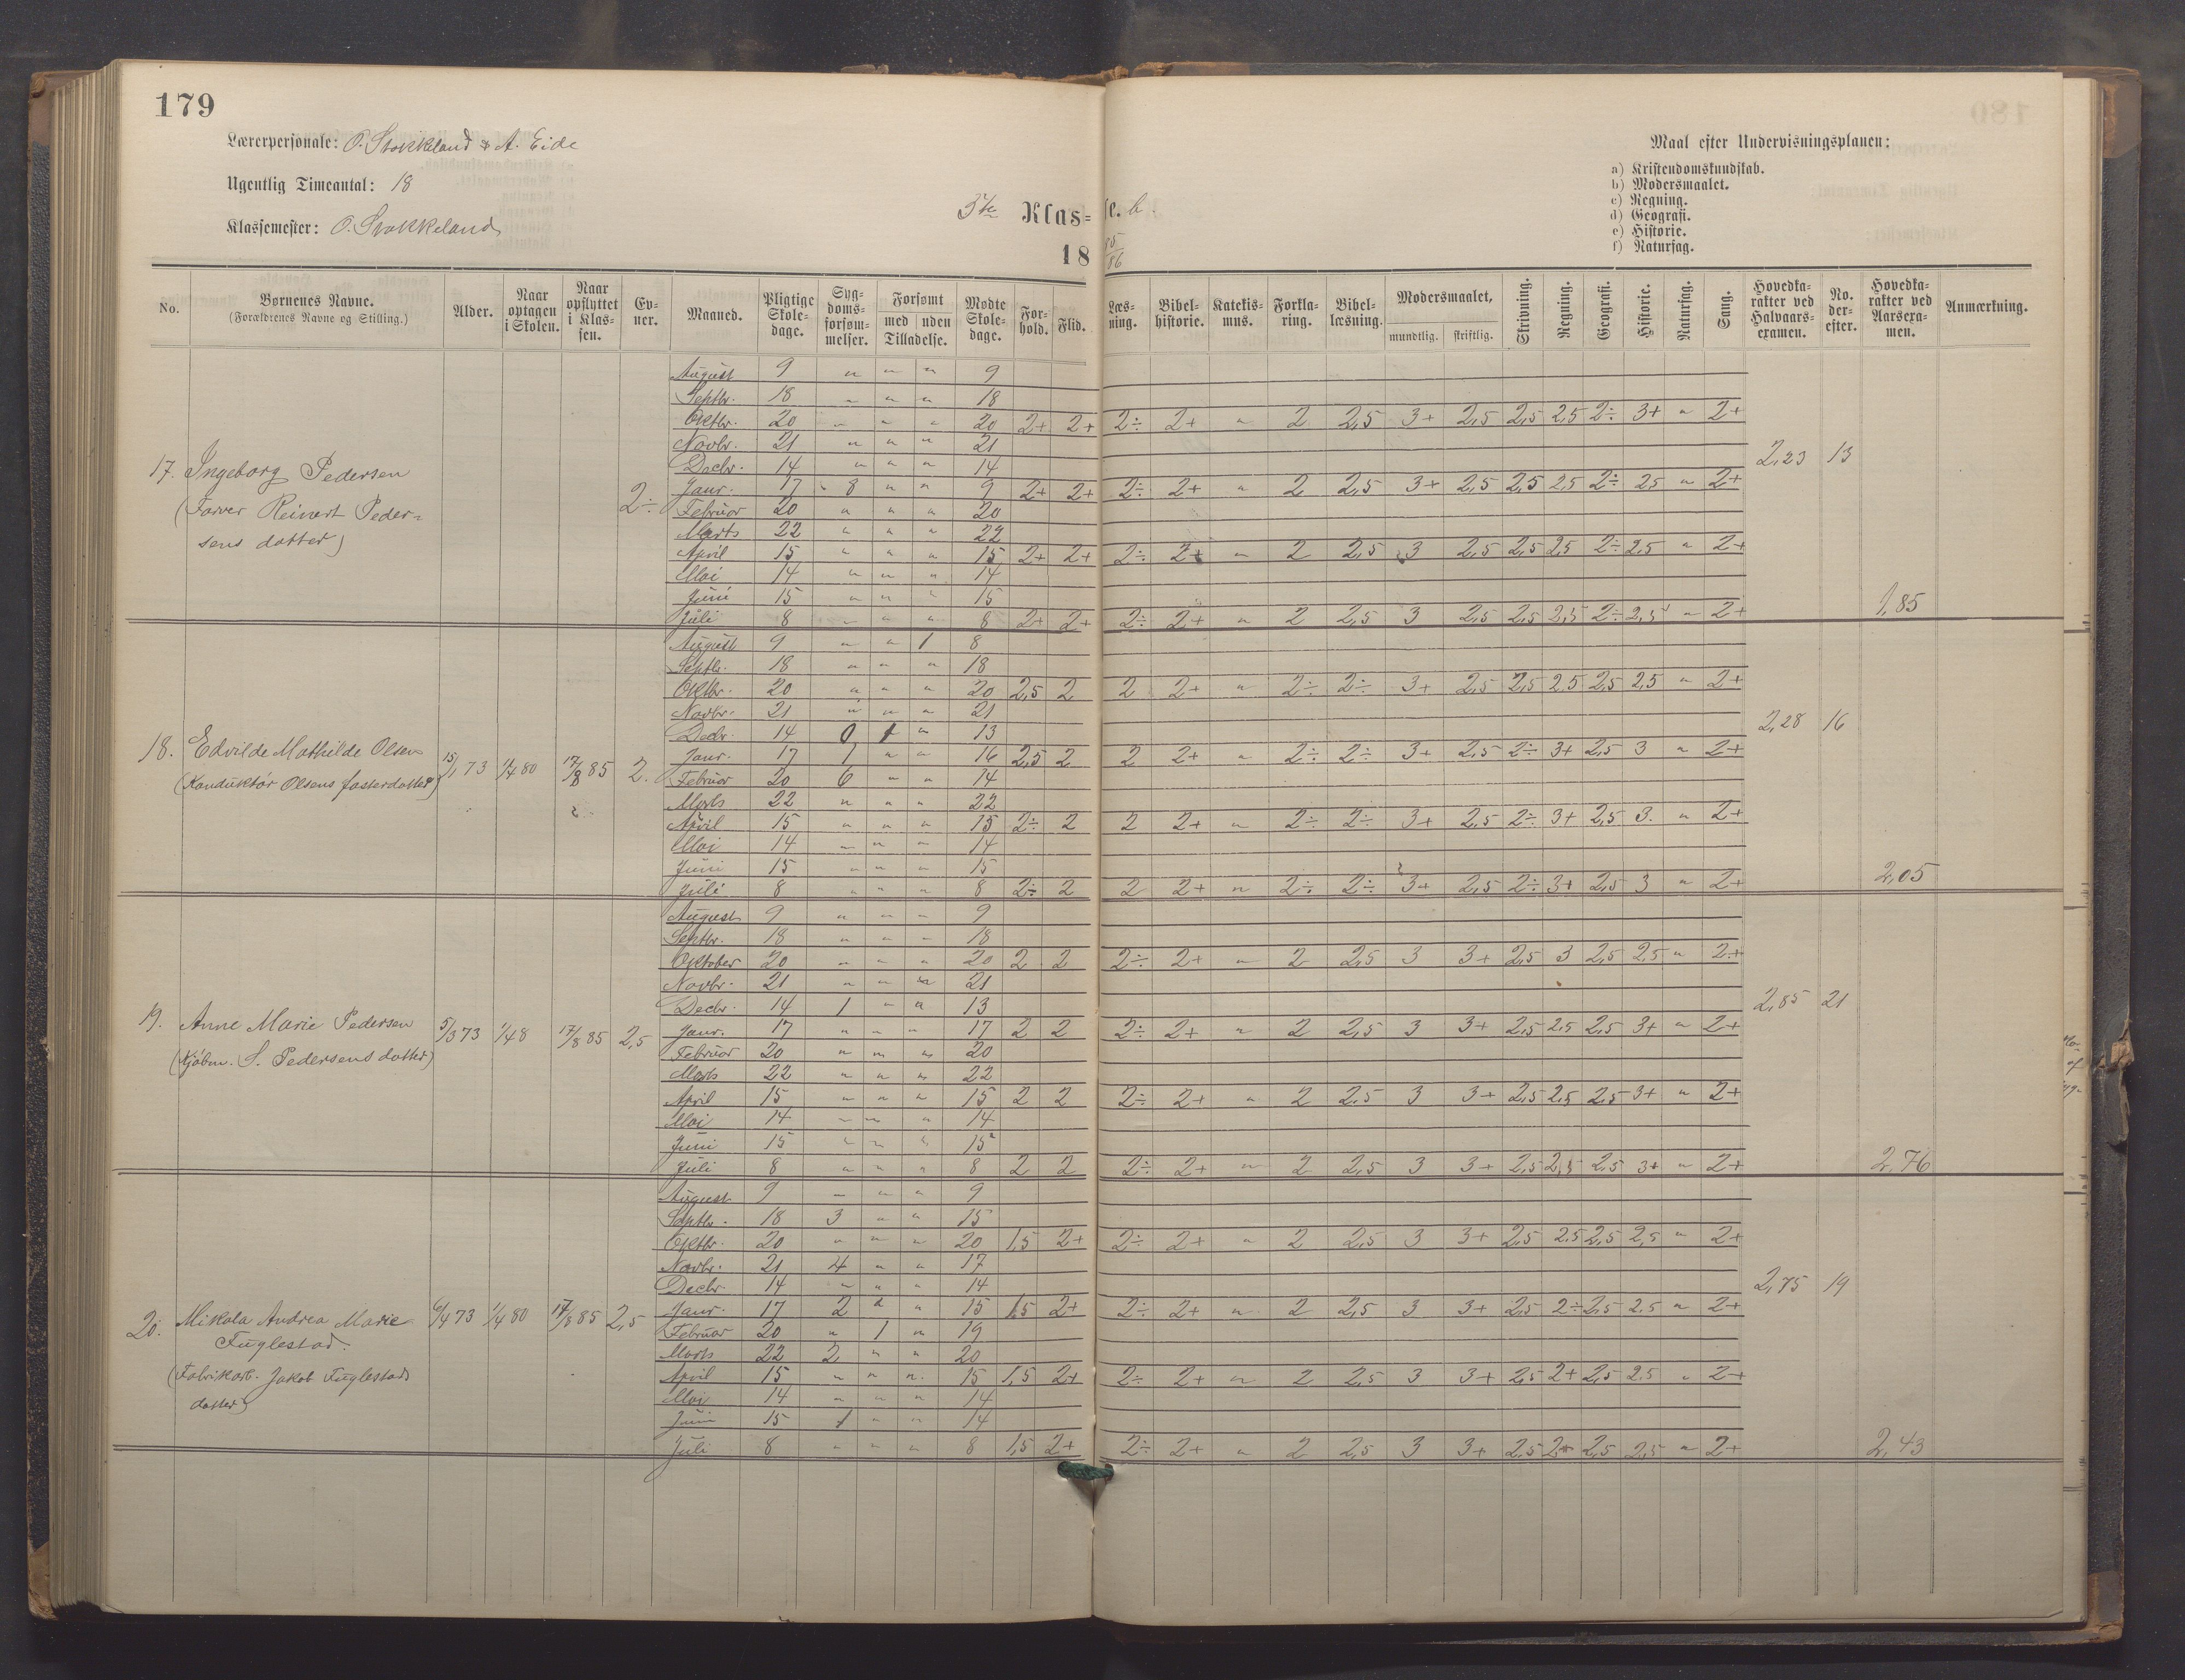 179
Lærerpersonale: O. Stokkeland & A. Eide
Ugentlig Timeantal: 18
Klassemester: O. Stokkeland
5te Klasse. b.
18 85/86
Maal efter Undervisningsplanen:
a) Kristendomskundskab.
b) Modersmaalet.
c) Regning.
d) Geografi.
e) Historie.
f) Naturfag.
No. | Børnenes Navne. (Forældrenes Navne og Stilling.) | Alder. | Naar optagen i Skolen. | Naar opflyttet i Klassen. | Evner. | Maaned. | Pligtige Skoledage. | Sygdomsforsømmelser. | Forsømt med / uden Tilladelse. | Mødte Skoledage. | Forhold. | Flid. | Læsning. | Bibelhistorie. | Katekismus. | Forklaring. | Bibellæsning. | Modersmaalet, mundtlig. | skriftlig. | Skrivning. | Regning. | Geografi. | Historie. | Naturfag. | Sang. | Hovedkarakter ved Halvaarsexamen. | No. derefter. | Hovedkarakter ved Aarsexamen. | Anmærkning.
17. Ingeborg Pedersen
(Farver Reinert Peder-
sens datter)
2÷
August 9 " " " 9
Septbr. 18 " " " 18
Oktbr. 20 " " " 20 2+ 2+ 2÷ 2+ " 2 2,5 3+ 2,5 2,5 2,5 2÷ 3+ " 2+
Novbr. 21 " " " 21
Decbr. 14 " " " 14 2,23 13
Janr. 17 8 " " 9 2+ 2+ 2÷ 2+ " 2 2,5 3+ 2,5 2,5 2,5 2÷ 2,5 " 2+
Februar 20 " " " 20
Marts 22 " " " 22
April 15 " " " 15 2+ 2+ 2÷ 2+ " 2 2,5 3 2,5 2,5 2,5 2÷ 2,5 " 2+
Mai 14 " " " 14
Juni 15 " " " 15
Juli 8 " " " 8 2+ 2+ 2÷ 2+ " 2 2,5 3 2,5 2,5 2,5 2÷ 2,5 " 2+ 1,85
18. Edvilde Mathilde Olsen
(Konduktør Olsens fosterdatter)
15/1 73 1/4 80 17/8 85 2.
August 9 " " 1 8
Septbr. 18 " " " 18
Oktbr. 20 " " " 20 2,5 2 2 2+ " 2÷ 2÷ 3+ 2,5 2,5 2,5 2,5 2,5 " 2+
Novbr. 21 " " " 21
Decbr. 14 0 1 " 13 2,28 16
Janr. 17 1 " " 16 2,5 2 2 2+ " 2÷ 2÷ 3+ 2,5 2÷ 3+ 2,5 3 " 2+
Februar 20 6 " " 14
Marts 22 " " " 22
April 15 " " " 15 2÷ 2 2 2+ " 2÷ 2÷ 3+ 2,5 2÷ 3+ 2,5 3. " 2+
Mai 14 " " " 14
Juni 15 " " " 15
Juli 8 " " " 8 2÷ 2 2 2+ " 2÷ 2÷ 3+ 2,5 2÷ 3+ 2,5 3 " 2+ 2,05
19. Anne Marie Pedersen
(Kjøbm. S. Pedersens datter)
5/3 73 1/4 8 17/8 85 2,5
August 9 " " " 9
Septbr. 18 " " " 18
Oktober 20 " " " 20 2 2 2÷ 2+ " 2 2,5 3 3+ 2,5 3 2,5 2,5 " 2+
Novbr. 21 " " " 21
Decbr. 14 1 " " 13 2,85 21
Janr. 17 " " " 17 2 2 2÷ 2+ " 2 2,5 3 3+ 2,5 2,5 2,5 3+ " 2+
Februar 20 " " " 20
Marts 22 " " " 22
April 15 " " " 15 2 2 2÷ 2+ " 2 2,5 3 3+ 2,5 2,5 2,5 3+ " 2+
Mai 14 " " " 14
Juni 15 " " " 15
Juli 8 " " " 8 2 2 2÷ 2+ " 2 2,5 3 3+ 2,5 2,5 2,5 3+ " 2+ 2,76
20. Mikala Andrea Marie
Fuglestad.
(Fabrikarb. Jakob Fuglestads
datter)
6/4 73 1/4 80 17/8 85 2,5
August 9 " " " 9
Septbr. 18 3 " " 15
Oktbr. 20 " " " 20 1,5 2+ 2÷ 2+ " 2 2,5 3 3+ 2,5 2,5 2,5 2,5 " 2+
Novbr. 21 4 " " 17
Decbr. 14 " " " 14 2,75 19
Janr. 17 2 " " 15 1,5 2+ 2÷ 2+ " 2 2,5 3 3+ 2,5 2÷ 2,5 2,5 " 2+
Februar 20 " 1 " 19
Marts 22 2 " " 20
April 15 " " " 15 1,5 2+ 2÷ 2+ " 2 2,5 3 3+ 2,5 2+ 2,5 2,5 " 2+
Mai 14 " " " 14
Juni 15 1 " " 14
Juli 8 " " " 8 1,5 2+ 2÷ 2+ " 2 2,5 3 3+ 2,5 2+ 2,5 2,5 " 2+ 2,43